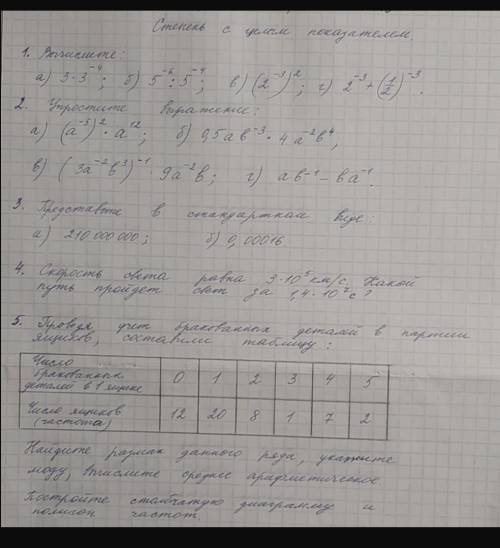 Степень с целым показателем.
1. Вычислите:
а) 3·3⁻⁴; б) 5⁻⁶:5⁻⁴; в) (2⁻³)²; г) 2⁻³+(1/2)⁻³.
2. Упростите выражение:
а) (a⁻³)²·a¹²; б) 0,5ab⁻³·4a⁻²b⁴,
в) (3a⁻²b³)⁻¹·9a⁻²b; г) ab⁻¹-ba⁻¹.
3. Представьте в стандартном виде:
а) 210 000 000; б) 0,00016
4. Скорость света равна 3·10⁵ км/с. Какой
путь пройдет свет за 1,4·10⁷ с?
5. Проводя учет бракованных деталей в партии
ящиков, составили таблицу:
Число
бракованных
деталей в 1 ящике
0 1 2 3 4 5
Число ящиков
(частота)
12 20 8 1 7 2
Найдите размах данного ряда, укажите
моду, вычислите среднее арифметическое
Постройте столбчатую диаграмму и
полигон частот.